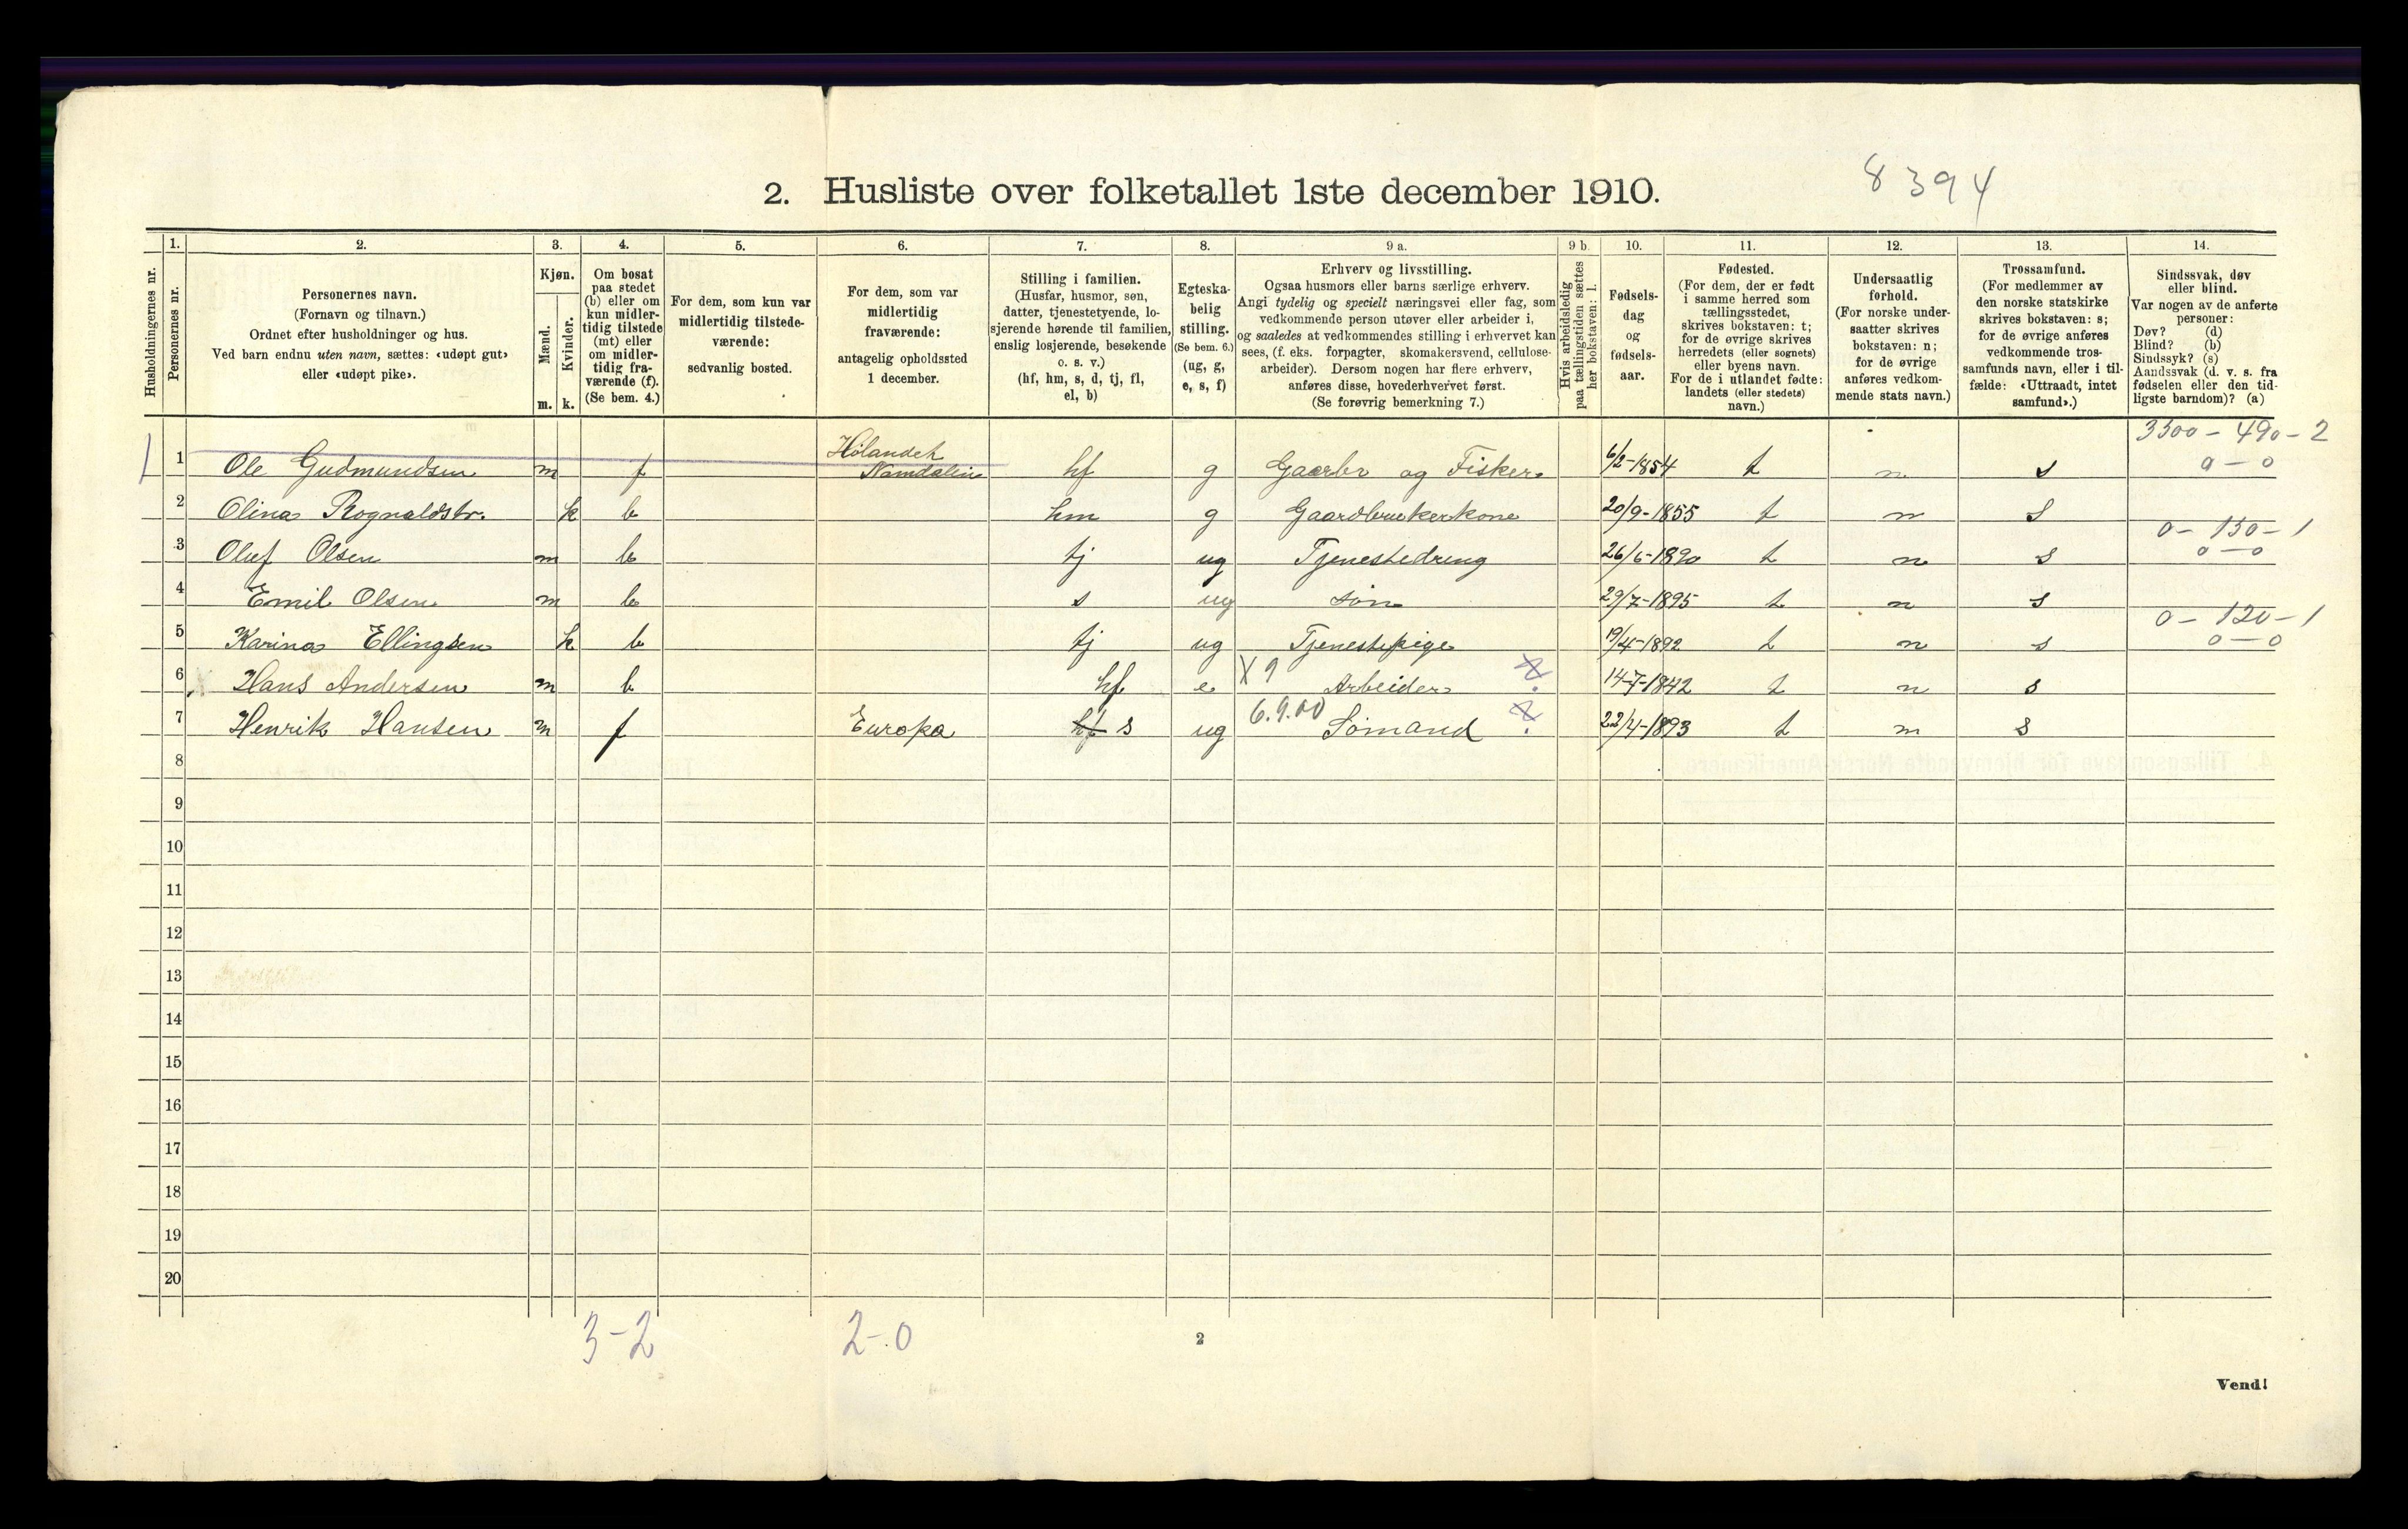 8394
2. Husliste over folketallet 1ste december 1910.
Husholdningernes nr.
1. Personernes nr.
2. Personernes navn.
(Fornavn og tilnavn.)
Ordnet efter husholdninger og hus.
Ved barn endnu uten navn, sættes: «udøpt gut»
eller «udøpt pike».
3. Kjøn.
Mænd. m.
Kvinder. k.
4. Om bosat
paa stedet
(b) eller om
kun midler-
tidig tilstede
(mt) eller
om midler-
tidig fra-
værende (f).
(Se bem. 4.)
5. For dem, som kun var
midlertidig tilstede-
værende:
sedvanlig bosted.
6. For dem, som var
midlertidig
fraværende:
antagelig opholdssted
1 december.
7. Stilling i familien.
(Husfar, husmor, søn,
datter, tjenestetyende, lo-
sjerende hørende til familien,
enslig losjerende, besøkende
o. s. v.)
(hf, hm, s, d, tj, fl,
el, b)
8. Egteska-
belig
stilling.
(Se bem. 6.)
(ug, g,
e, s, f)
9 a. Erhverv og livsstilling.
Ogsaa husmors eller barns særlige erhverv.
Angi tydelig og specielt næringsvei eller fag, som
vedkommende person utøver eller arbeider i,
og saaledes at vedkommendes stilling i erhvervet kan
sees, (f. eks. forpagter, skomakersvend, cellulose-
arbeider). Dersom nogen har flere erhverv,
anføres disse, hovederhvervet først.
(Se forøvrig bemerkning 7.)
9 b. Hvis arbeidsledig
paa tællingstiden sættes
her bokstaven: l.
10. Fødsels-
dag
og
fødsels-
aar.
11. Fødested.
(For dem, der er født
i samme herred som
tællingsstedet,
skrives bokstaven: t;
for de øvrige skrives
herredets (eller sognets)
eller byens navn.
For de i utlandet fødte:
landets (eller stedets)
navn.)
12. Undersaatlig
forhold.
(For norske under-
saatter skrives
bokstaven: n;
for de øvrige
anføres vedkom-
mende stats navn.)
13. Trossamfund.
(For medlemmer av
den norske statskirke
skrives bokstaven: s;
for de øvrige anføres
vedkommende tros-
samfunds navn, eller i til-
fælde: «Uttraadt, intet
samfund».)
14. Sindssvak, døv
eller blind.
Var nogen av de anførte
personer:
Døv? (d)
Blind? (b)
Sindssyk? (s)
Aandssvak (d. v. s. fra
fødselen eller den tid-
ligste barndom)? (a)
3500 - 490 - 2
1 Ole Gudmundsen m f Namdalen hf g Gaarbr og Fisker 6/2-1854 t n s 0 - 0
2 Olina Rognaldstr. k b hm g Gaardbrukerkone 20/9-1855 t n s
0 - 150 - 1
3 Oluf Olsen m b tj ug Tjenestedreng 26/6-1890 t n s 0 - 0
4 Emil Olsen m b s ug søn 29/7-1895 t n s
0 - 120 - 1
5 Karina Ellingsen k b tj ug Tjenestepige 19/4-1892 t n s 0 - 0
6 Hans Andersen m b hf e X 9 Arbeider 14-7-1842 t n s
7 Henrik Hansen m f Europa hf s ug 6.9.00 Sømand 22/4-1893 t n s
8
9
10
11
12
13
14
15
16
17
18
19
20
3-2 2-0
2
Vend!